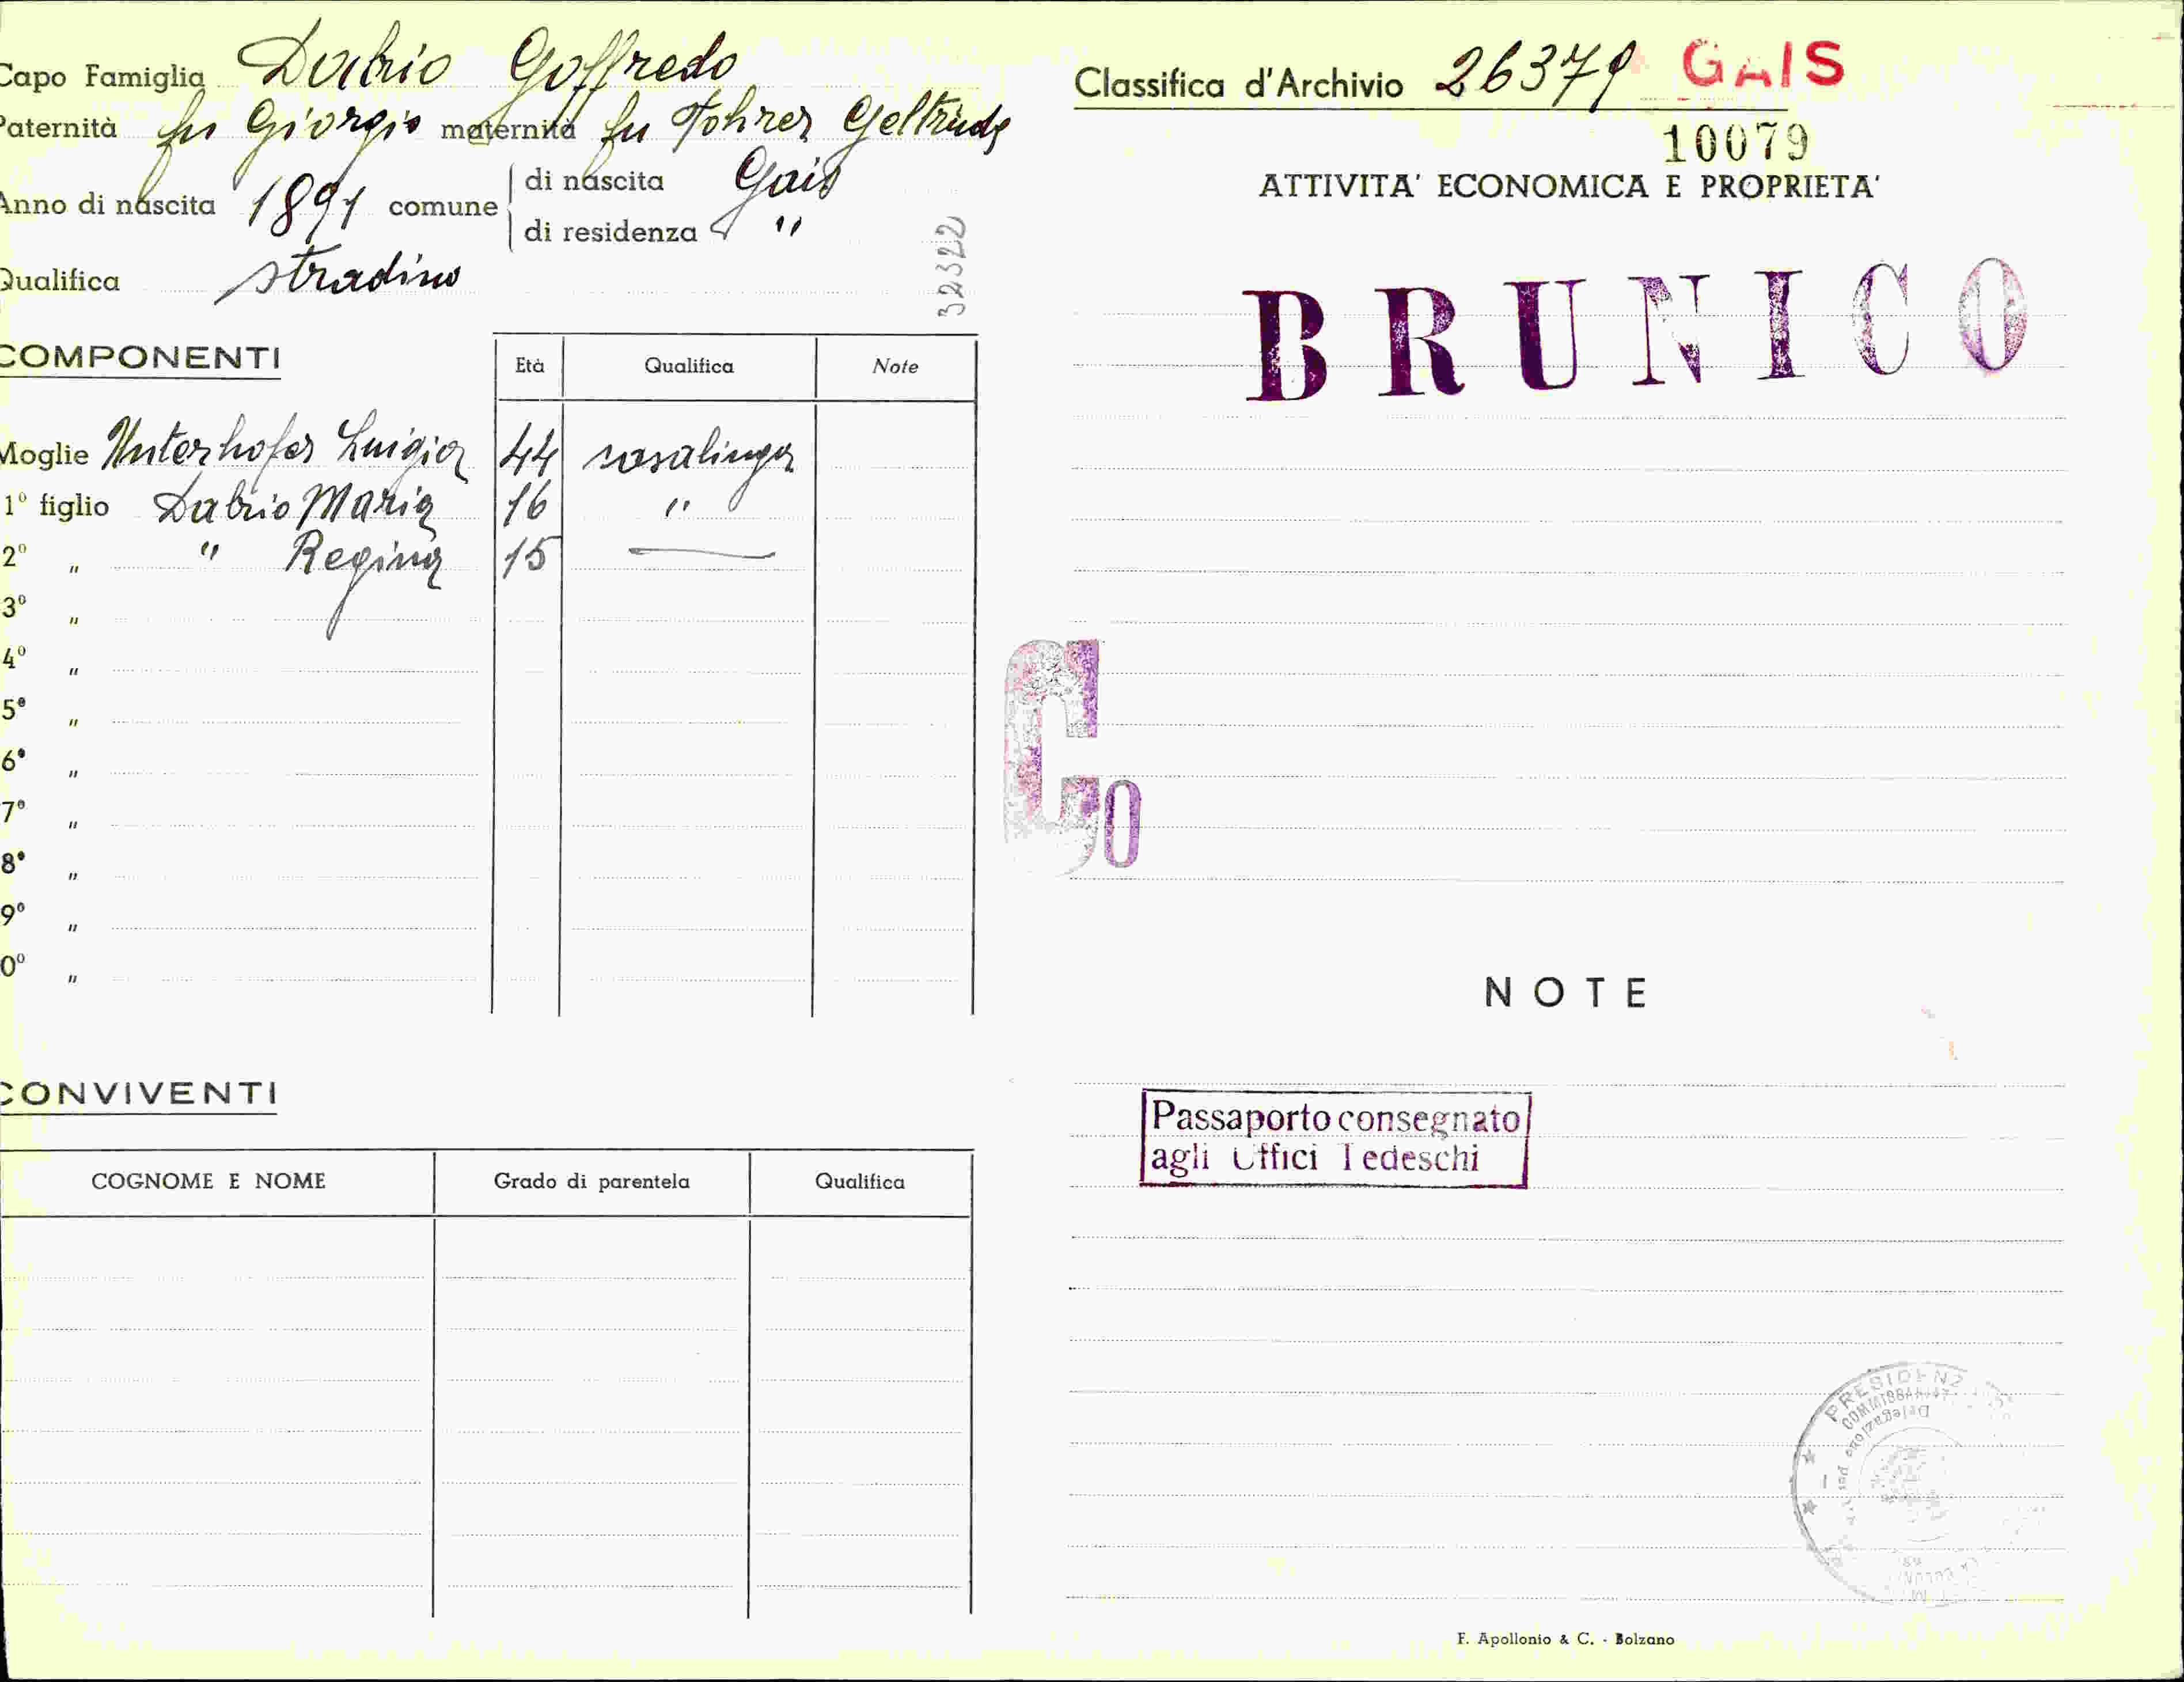 Capo Famiglia Dabrio Goffredo
Paternità fu Giorgio maternità fu Fohrer Geltrude
Anno di nascita 1891 comune di nascita Gais
di residenza "
Qualifica stradino
32322
COMPONENTI Età Qualifica Note
Moglie Unterhofer Luigia 44 casalinga
1º figlio Dabrio Maria 16 "
2º " " Regina 15 —
3º "
4º "
5º "
6º "
7º "
8º "
9º "
0º "
CONVIVENTI
COGNOME E NOME Grado di parentela Qualifica
Classifica d'Archivio 26379 GAIS
10079
ATTIVITA' ECONOMICA E PROPRIETA'
BRUNICO
Co
NOTE
Passaporto consegnato
agli Uffici Tedeschi
PRESIDENZ
COMMISSARIAT
Delegazione per
F. Apollonio & C. - Bolzano